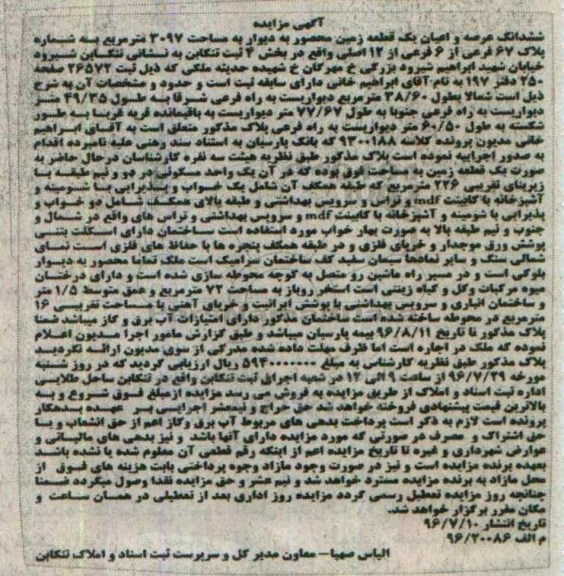 آگهی مزایده
ششدانگ عرصه و اعیان یک قطعه زمین محصور به دیوار به مساحت ۳۰۹۷ مترمربع به شماره
پلاک ۶۷ فرعی از ۶ فرعی از ۱۲ اصلی واقع در بخش ۳ ثبت تنکابن به نشانی تنکابن شیرود
خیابان شهید ابراهیم شیرود بزرگی خ مهرگان خ شهید حدیثه ملکی که ذیل ثبت ۲۶۵۷۲ صفحه
۲۵۰ دفتر ۱۹۷ به نام آقای ابراهیم خانی دارای سابقه ثبت است و حدود و مشخصات آن به شرح
ذیل است شمالا بطول ۳۸/۶۰ مترمربع دیواریست به راه فرعی شرقا به طول ۴۹/۳۵ متر
دیواریست به راه فرعی جنوبا به طول ۷۷/۶۷ متر دیواریست به باقیمانده قریه غربسا به طور
شکسته به طول ۶۰/۵۰ متر دیواریست به راه فرعی پلاک مذکور متعلق است به آقای ابراهیم
خانی مدیون پرونده کلاسه ۹۳۰۰۱۸۸ که بانک پارسیان به استناد سند رهنی علیه نامبرده اقدام
به صدور اجراییه نموده است پلاک مذکور طبق نظریه هیئت سه نفره کارشناسان درحال حاضر به
صورت یک قطعه زمین به مساحت فوق بوده که در آن یک واحد مسکونی در دو و نیم طبقه با
زیربنای تقریبی ۲۲۶ مترمربع که طبقه همکف آن شامل یک خواب و پذیرایی با شومینه و
آشپزخانه با کابینت mdf و تراس و سرویس بهداشتی و طبقه بالای همکف شامل دو خواب و
پذیرایی با شومینه و آشپزخانه با کابینت mdf و سرویس بهداشتی و تراس های واقع در شمال و
جنوب و نیم طبقه بالا به صورت بهار خواب مورد استفاده است ساختمان دارای اسکلت بتنی
پوشش ورق موجدار و خرپای فلزی و در طبقه همکف پنجره ها با حفاظ های فلزی است نمای
شمالی سنگ و سایر نماها سیمان سفید کف ساختمان سرامیک است ملک تماما محصور به دیوار
بلوکی است و در مسیر راه ماشین رو متصل به کوچه محوطه سازی شده است و دارای درختان
میوه مرکبات وکل و گیاه زینتی است استخر روباز به مساحت ۷۲ مترمربع و عمق متوسط ۱/۵ متر
و ساختمان انباری و سرویس بهداشتی با پوشش ایرانیت و خرپای آهنی با مساحت تقریبی ۱۶
مترمربع در محوطه ساخته شده است ساختمان مذکور دارای امتیازات آب برق و گاز میباشد ضمنا
پلاک مذکور تا تاریخ ۹۶/۸/۱۱ بیمه پارسیان میباشد و طبق گزارش مامور اجرا مدیون اعلام
نموده که ملک در اجاره است اما ظرف مهلت داده شده مدرکی از سوی مدیون ارائه نگردید
پلاک مذکور طبق نظریه کارشناس به مبلغ ریال ارزیابی گردید که در روز شنبه
مورخه ۹۶/۷/۲۹ از ساعت ۹ الی ۱۲ در شعبه اجرای ثبت تنکابن واقع در تنکابن ساحل طلایی
اداره ثبت اسناد و املاک از طریق مزایده به فروش می رسد مزایده ازمبلغ فوق شروع و به
بالاترین قیمت پیشنهادی فروخته خواهد شد حق حراج و نیمعشر اجرایی بر عهده بدهکار
پرونده است لازم به ذکر است پرداخت بدهی های مربوط آب برق وگاز اعم از حق انشعاب و یا
حق اشتراک و مصرف در صورتی که مورد مزایده دارای آنها باشد و نیز بدهی های مالیاتی و
عوارض شهرداری و غیره تا تاریخ مزایده اعم از اینکه رقم قطعی آن معلوم شده یا نشده باشد
بعهده برنده مزایده است و نیز در صورت وجود مازاد وجوه پرداختی بابت هزینه های فوق از
محل مازاد به برنده مزایده مسترد خواهد شد و نیم عشر و حق مزایده نقدا وصول میگردد ضمنا
چنانچه روز مزایده تعطیل رسمی گردد مزایده روز اداری بعد از تعطیلی در همان ساعت و
مکان مقرر برگزار خواهد شد.
تاریخ انتشار ۹۶/۷/۱۰
م الف ۹۶/۲۰۰۸۶
الیاس صهبا– معاون مدیر کل و سرپرست ثبت اسناد و املاک تنکابن